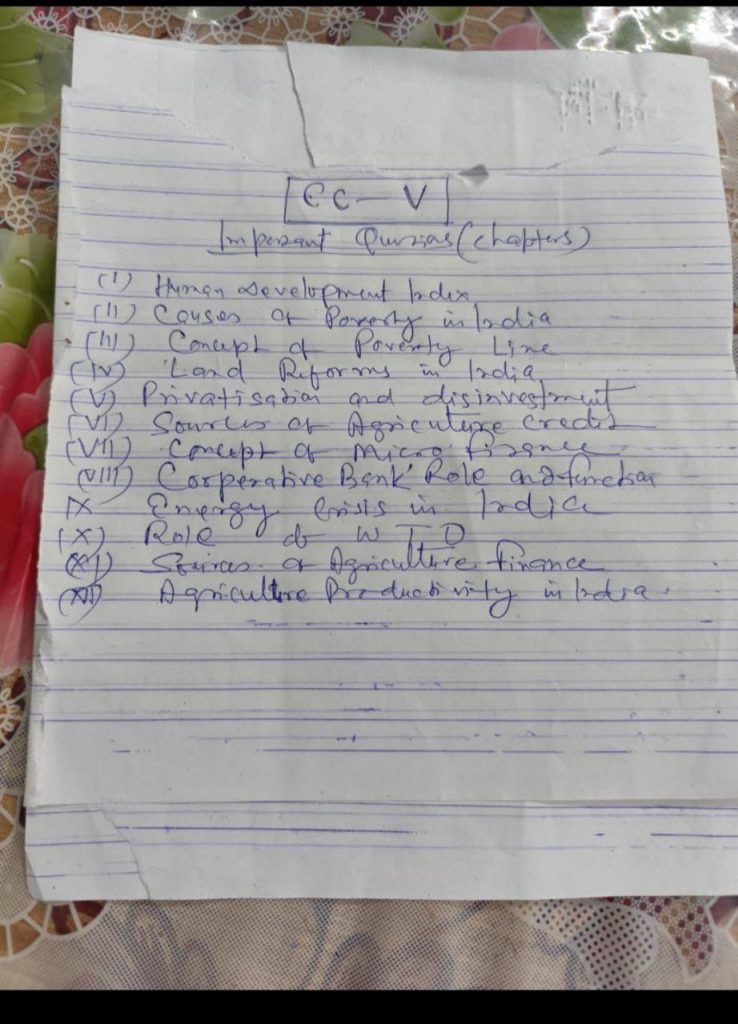 EC - V
Important (chapters)
(I) Human Development Index
(II) Causes of Poverty in India
(III) Concept of Poverty Line
(IV) Land Reforms in India
(V) Privatisation and disinvestment
(VI) Sources of Agriculture Credit
(VII) Concept of Micro finance
(VIII) Corperative Bank Role and function
IX Energy Crisis in India
(X) Role of WTO
(XI) Sources of Agriculture finance
(XII) Agriculture Productivity in India.